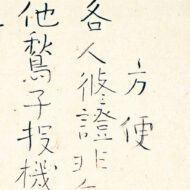 方便
各人發證非
他鶖子投機